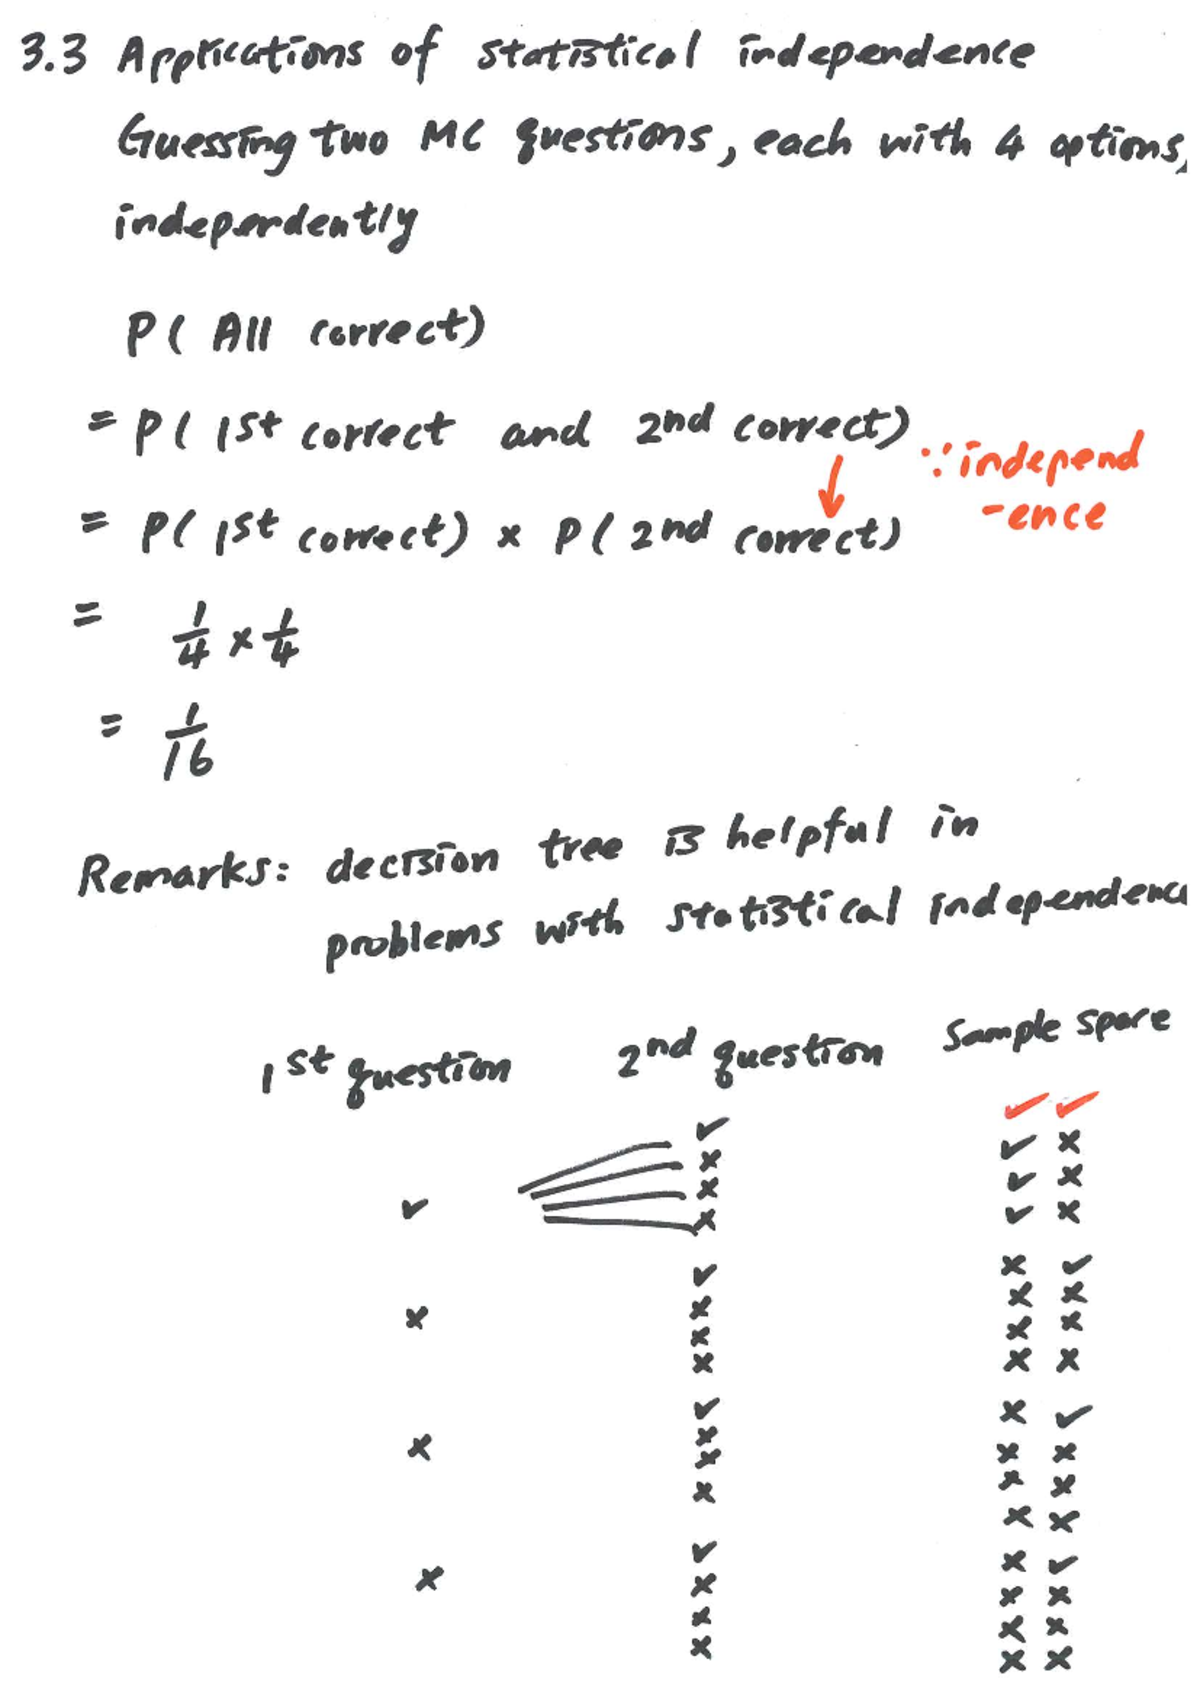 3.3 Applications of statistical independence
Guessing two MC questions, each with 4 options,
independently
P( All correct)
= P( 1st correct and 2nd correct)
∵ independ
-ence
= P( 1st correct) × P( 2nd correct)
= 1/4 × 1/4
= 1/16
Remarks: decision tree is helpful in
problems with statistical independence
1st question 2nd question Sample space
✓ ✓ ✓
✓ ×
× ✓ ×
✓ × ✓ ×
×
✓ × ✓
× × × ×
× × ×
× × ×
✓ × ✓
× × × ×
× × ×
× × ×
✓ × ✓
× × × ×
× × ×
× × ×